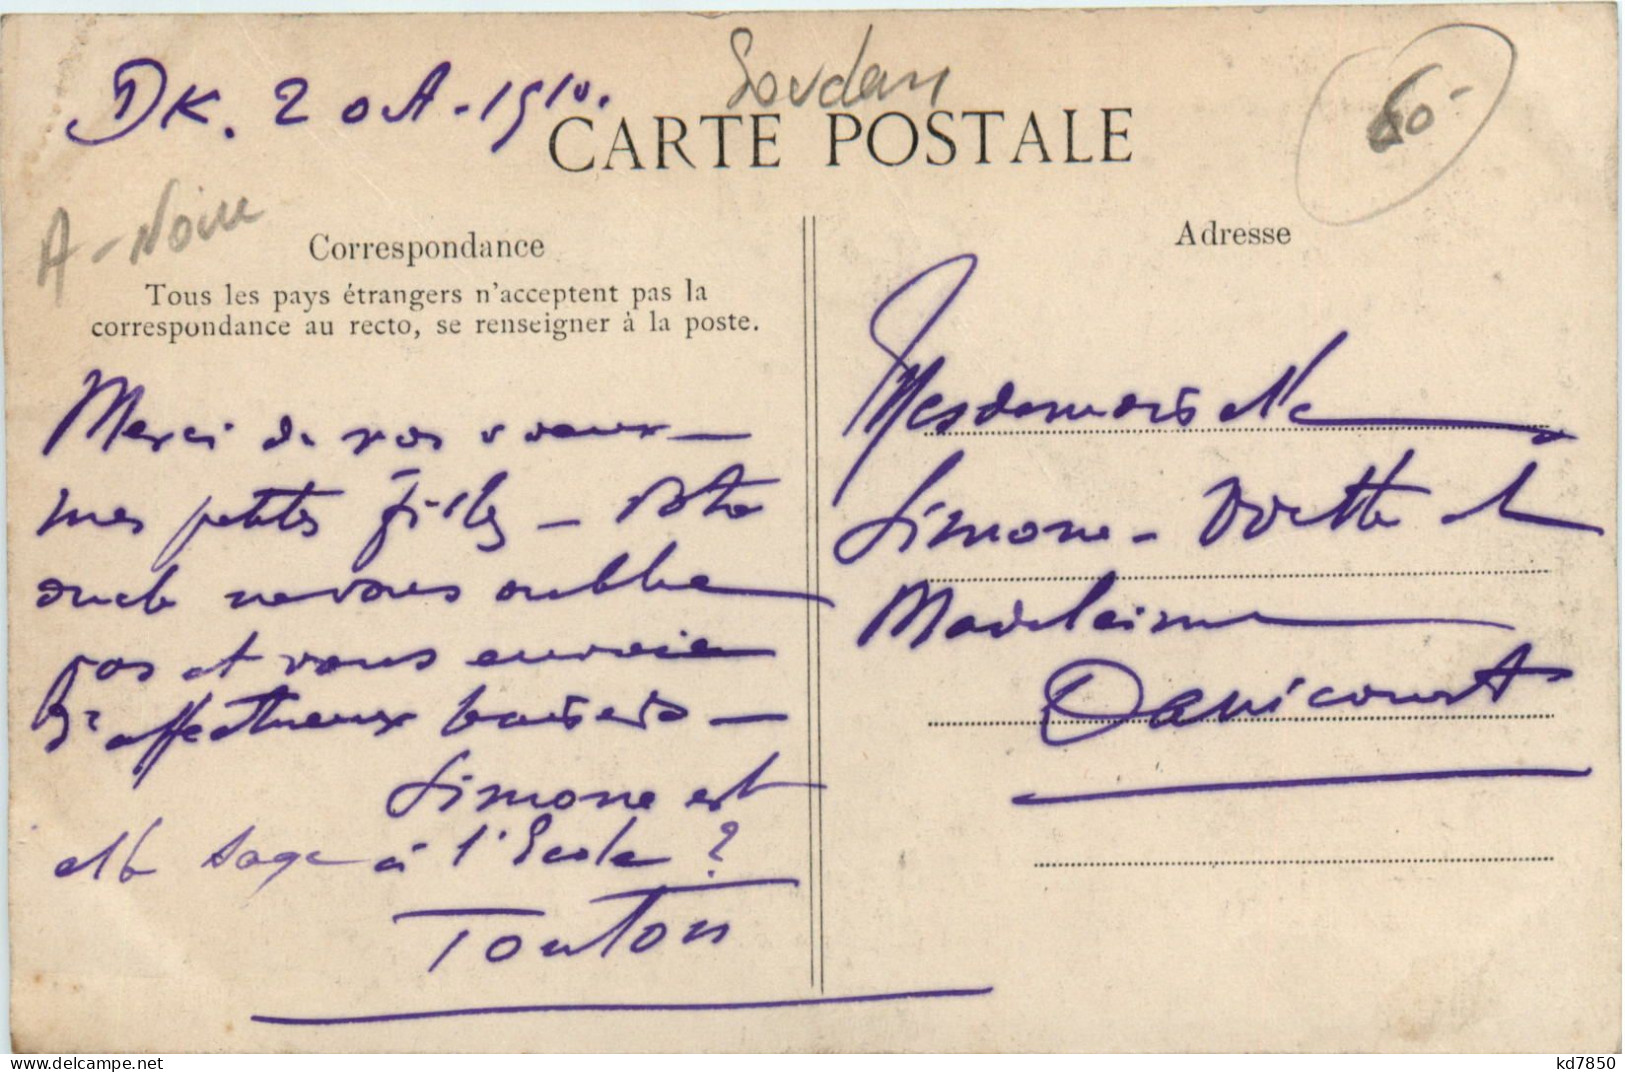 Soudan
DK. 2 oct - 1910.
60-
CARTE POSTALE
A - Noire
Correspondance
Adresse
Tous les pays étrangers n'acceptent pas la
correspondance au recto, se renseigner à la poste.
Merci de vos voeux —
mes petites filles — Votre
oncle ne vous oublie
pas et vous envoie
3 affectueux baisers —
Simone est
elle sage à l'Ecole ?
Tonton
Mesdemoiselle
Simone - Odette et
Madeleine
Danicourt
delcampe.net
kd7850